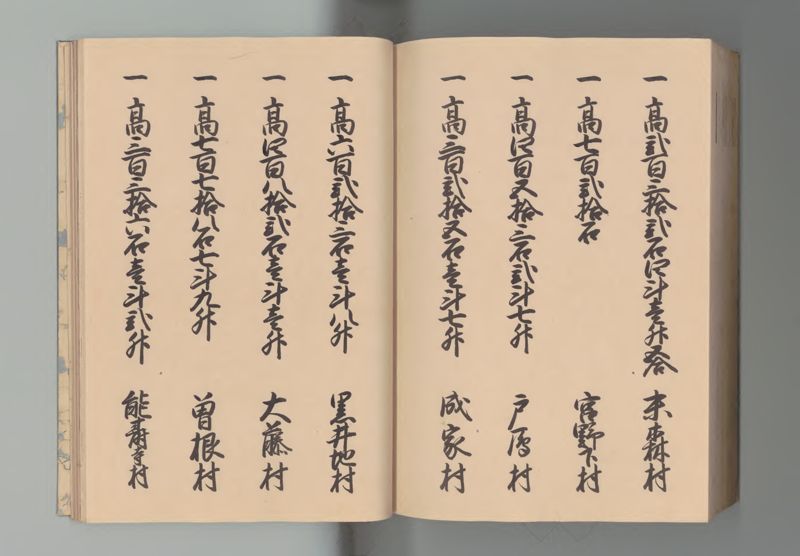 一 高弐百三拾弐石四斗壱升五合 末森村
一 高七百弐拾石 宮野下村
一 高四百五拾三石弐斗七升 戸馮村
一 高三百弐拾五石壱斗七升 成家村
一 高六百弐拾三石壱斗八升 黒井地村
一 高四百八拾弐石壱斗壱升 大藤村
一 高七百七拾八石七斗九升 曽根村
一 高三百三拾六石壱斗弐升 能寿寺村